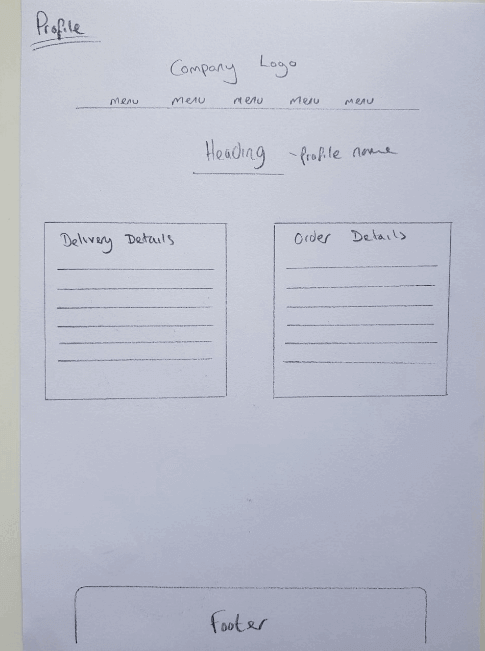 Profile
Company Logo
menu menu menu menu menu
Heading - Profile name
Delivery Details
Order Details
Footer